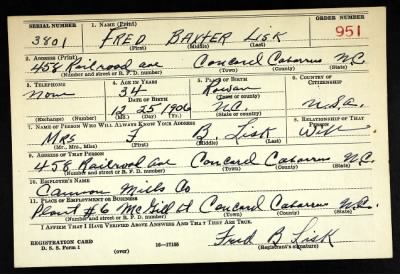 SERIAL NUMBER 1. NAME (Print) ORDER NUMBER
3801 FRED BAXTER LISK 951
(First) (Middle) (Last)
2. ADDRESS (Print)
458 Railroad ave Concord Cabarrus N.C.
(Number and street or R. F. D. number) (Town) (County) (State)
3. TELEPHONE 4. AGE IN YEARS 5. PLACE OF BIRTH 6. COUNTRY OF CITIZENSHIP
None 34 Rowan
DATE OF BIRTH (Town or county)
12 25 1906 N.C. U.S.A.
(Exchange) (Number) (Mo.) (Day) (Yr.) (State or country)
7. NAME OF PERSON WHO WILL ALWAYS KNOW YOUR ADDRESS 8. RELATIONSHIP OF THAT PERSON
Mrs F B. Lisk Wife
(Mr., Mrs., Miss) (First) (Middle) (Last)
9. ADDRESS OF THAT PERSON
458 Railroad ave Concord Cabarrus N.C.
(Number and street or R. F. D. number) (Town) (County) (State)
10. EMPLOYER'S NAME
Cannon Mills Co
11. PLACE OF EMPLOYMENT OR BUSINESS
Plant #6 McGill St Concord Cabarrus N.C.
(Number and street or R. F. D. number) (Town) (County) (State)
I AFFIRM THAT I HAVE VERIFIED ABOVE ANSWERS AND THAT THEY ARE TRUE.
REGISTRATION CARD 16—17105 Fred B Lisk
D. S. S. Form 1 (over) (Registrant's signature)